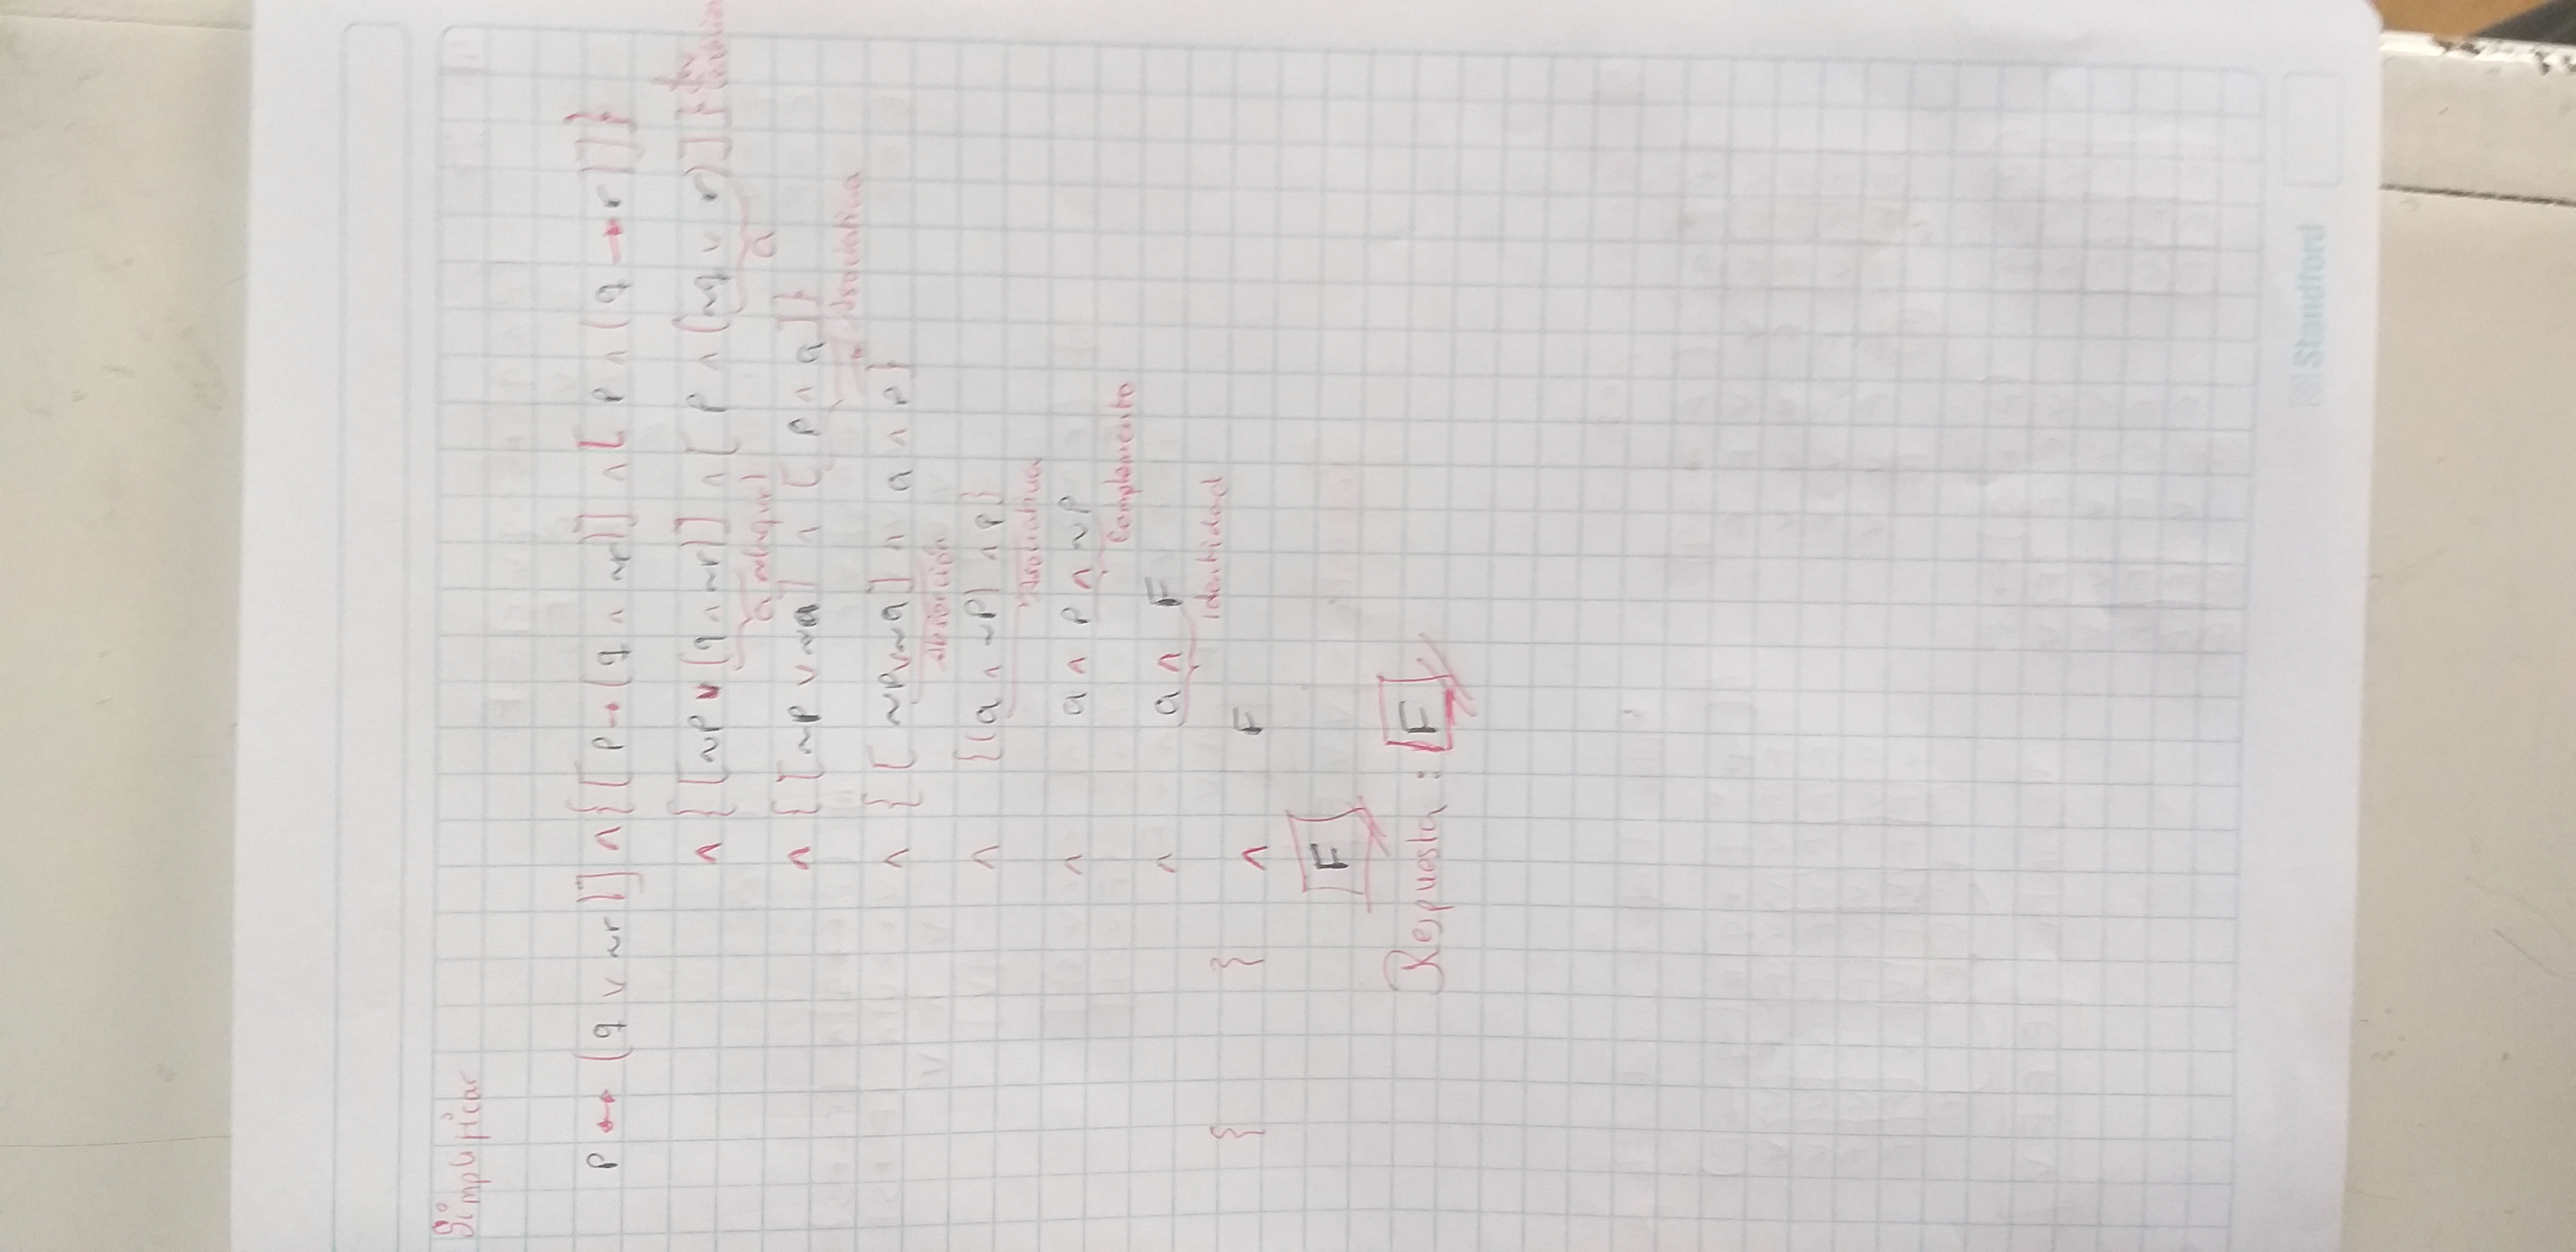 Simplificar
p ↔ (q ∨ ~r)] ∧ {[p → (q ∧ ~r)] ∧ [p ∧ (q → r)]}
∧ {[~p ∨ (q ∧ ~r)] ∧ [p ∧ (~q ∨ r)]}
a a
∧ {[~p ∨ ~a] ∧ [p ∧ a]}
Asociativa
∧ {[~p ∨ ~a] ∧ a ∧ p}
absorción
∧ {(a ∧ ~p) ∧ p}
Asociativa
∧ a ∧ p ∧ ~p
Complemento
∧ a ∧ F
identidad
{ } ∧ F
F
Respuesta: F
Standford